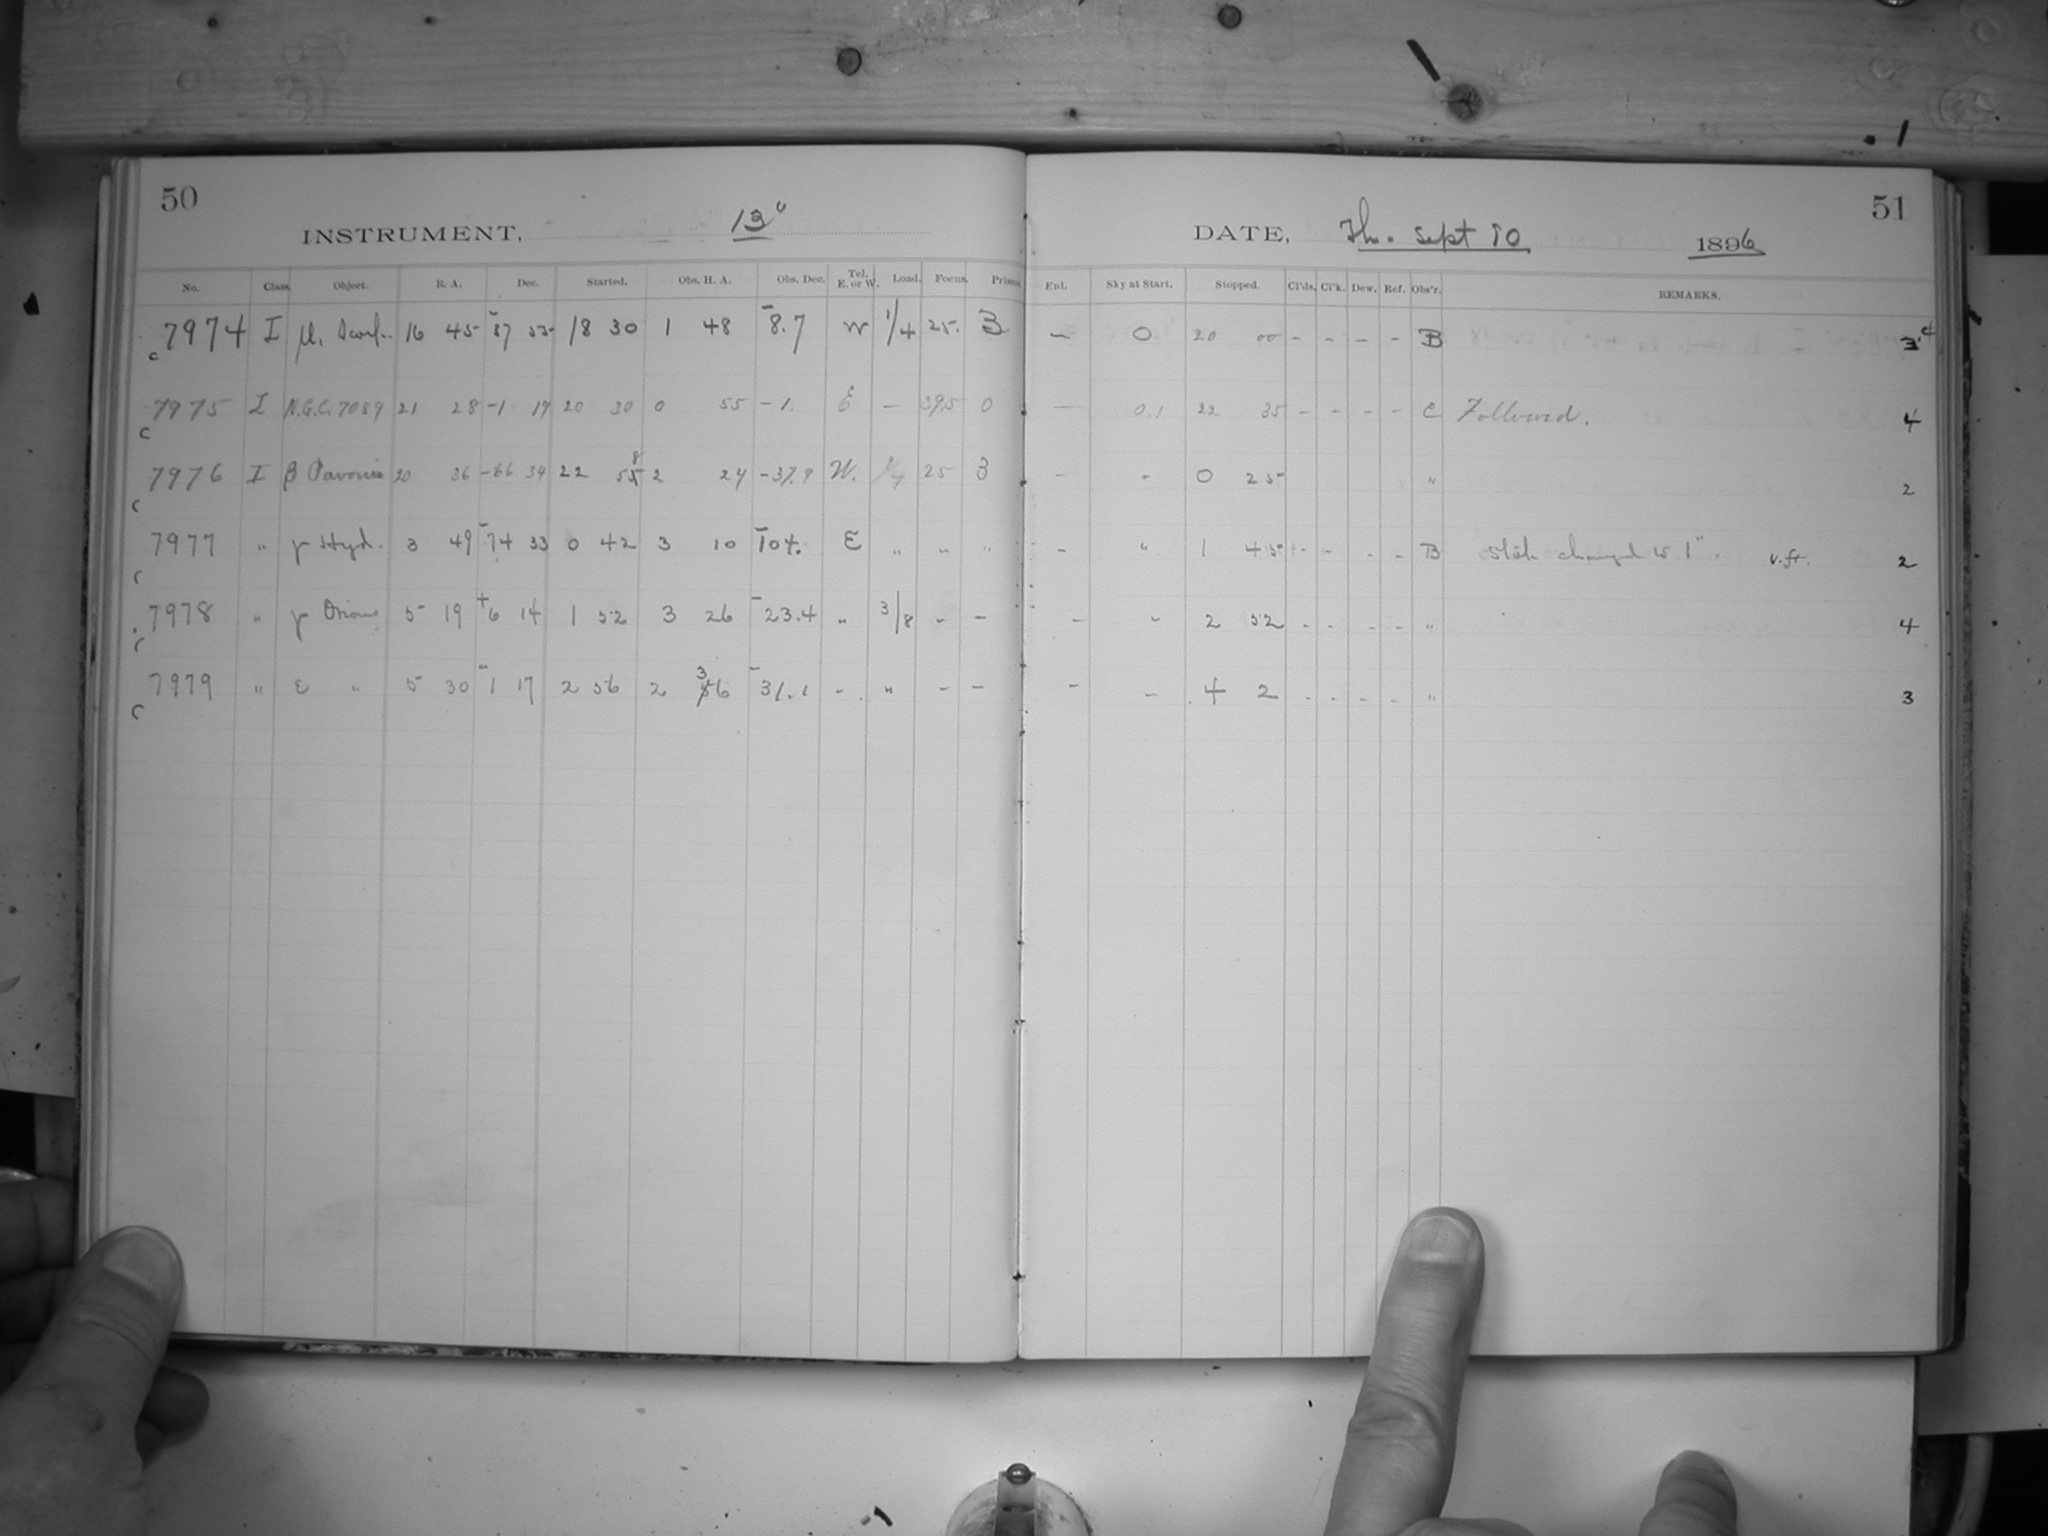 50
INSTRUMENT, 13"
No. Class. Object. R. A. Dec. Started. Obs. H. A. Obs. Dec. Tel. E. or W. Load. Focus. Prisms.
c 7974 I μ, Scorp. 16 45 -37 53 18 30 1 48 -8.7 W 1/4 25. 3
c 7975 I N.G.C. 7089 21 28 -1 19 20 30 0 55 -1. E — 39.5 0
c 7976 I β Pavonis 20 36 -66 34 22 55 8 2 24 -37.9 W. 1/4 25 3
c 7977 " γ Hyd. 3 49 -74 33 0 42 3 10 -104. E " " "
c 7978 " γ Orionis 5 19 +6 14 1 52 3 26 -23.4 " 3/8 - -
c 7979 " ε " 5 30 -1 17 2 56 2 3 56 -31.1 " " - -
51
DATE, Th. Sept 10 1896
Enl. Sky at Start. Stopped. Cl'ds. Cl'k. Dew. Ref. Obs'r. REMARKS.
— 0 20 00 - - - - B 3 c
— 0.1 22 35 - - - - C Followed. 4
- " 0 25 " 2
- " 1 45 - - - - B slit changed to 1". v.ft. 2
- " 2 52 - - - - " 4
- " 4 2 - - - - " 3